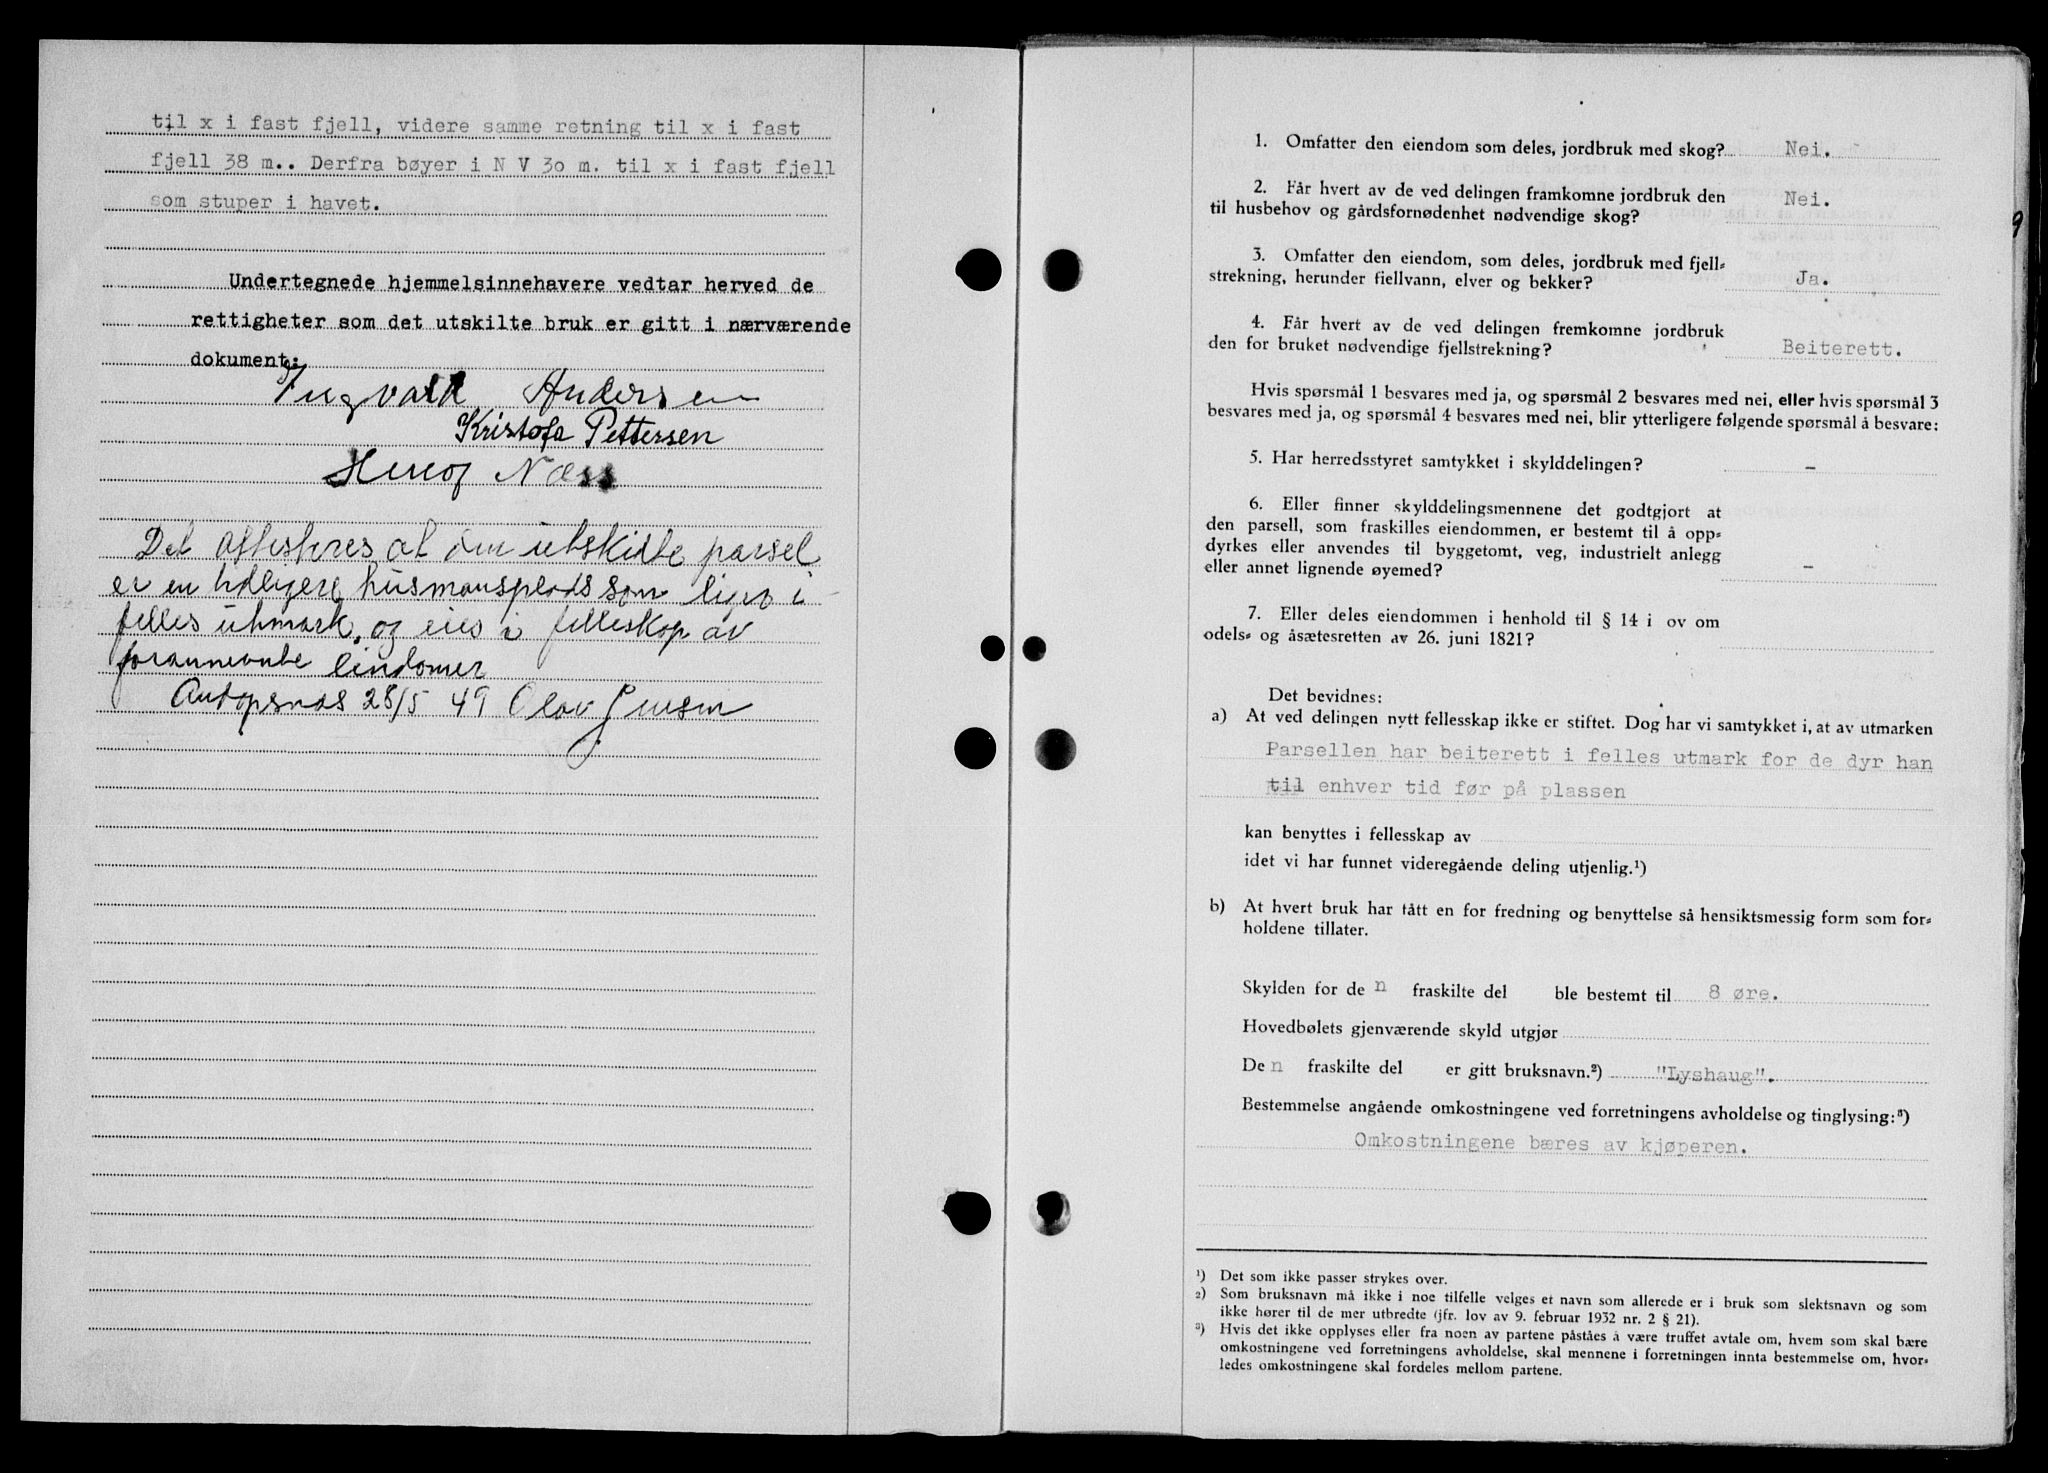 til x i fast fjell, videre samme retning til x i fast
fjell 38 m.. Derfra bøyer i N V 3o m. til x i fast fjell
som stuper i havet.
Undertegnede hjemmelsinnehavere vedtar herved de
rettigheter som det utskilte bruk er gitt i nærværende
dokument:
Ingvald Andersen
Kristofa Pettersen
Næss
Det attesteres at den utskilte parsel
er en tidligere husmansplads som liger i
felles utmark, og eies i felleskap av
forannevnte eindomer
28/5 49 Olav Jensen
1. Omfatter den eiendom som deles, jordbruk med skog? Nei.
2. Får hvert av de ved delingen framkomne jordbruk den
til husbehov og gårdsfornødenhet nødvendige skog? Nei.
3. Omfatter den eiendom, som deles, jordbruk med fjell=
strekning, herunder fiellvann, elver og bekker? Ja.
4. Får hvert av de ved delingen fremkomne jordbruk
den for bruket nødvendige fjellstrekning? Beiterett.
Hvis spørsmål 1 besvares med ja, og spørsmål 2 besvares med nei, eller hvis spørsmål 3
besvares med ja, og spørsmål 4 besvares med nei, blir ytterligere følgende spørsmål å besvare:
5. Har herredsstyret samtykket i skylddelingen? –
6. Eller finner skylddelingsmennene det godtgjort at
den parsell, som fraskilles eiendommen, er bestemt til å opp=
dyrkes eller anvendes til byggetomt, veg, industrielt anlegg
eller annet lignende øyemed? –
7. Eller deles eiendommen i henhold til § 14 i ov om
odels= og åsætesretten av 26. juni 1821?
9
Det bevidnes:
a) At ved delingen nytt fellesskap ikke er stiftet. Dog har vi samtykket i, at av utmarken
Parsellen har beiterett i felles utmark for de dyr han
til enhver tid før på plassen
kan benyttes i fellesskap av
idet vi har funnet videregående deling utjenlig.¹)
b) At hvert bruk har tått en for fredning og benyttelse så hensiktsmessig form som for=
holdene tillater.
Skylden for de n fraskilte del ble bestemt til 8 øre.
Hovedbølets gjenværende skyld utgjør
De n fraskilte del er gitt bruksnavn.²) "Lyshaug".
Bestemmelse angående omkostningene ved forretningens avholdelse og tinglysing:³)
Omkostningene bæres av kjøperen.
¹) Det som ikke passer strykes over.
²) Som bruksnavn må ikke i noe tilfelle velges et navn som allerede er i bruk som slektsnavn og som
ikke hører til de mer utbredte (jfr. lov av 9. februar 1932 nr. 2 § 21).
³) Hvis det ikke opplyses eller fra noen av partene påståes å være truffet avtale om, hvem som skal bære
omkostningene ved forretningens avholdelse, skal mennene i forretningen innta bestemmelse om, hvor=
ledes omkostningene skal fordeles mellom partene.